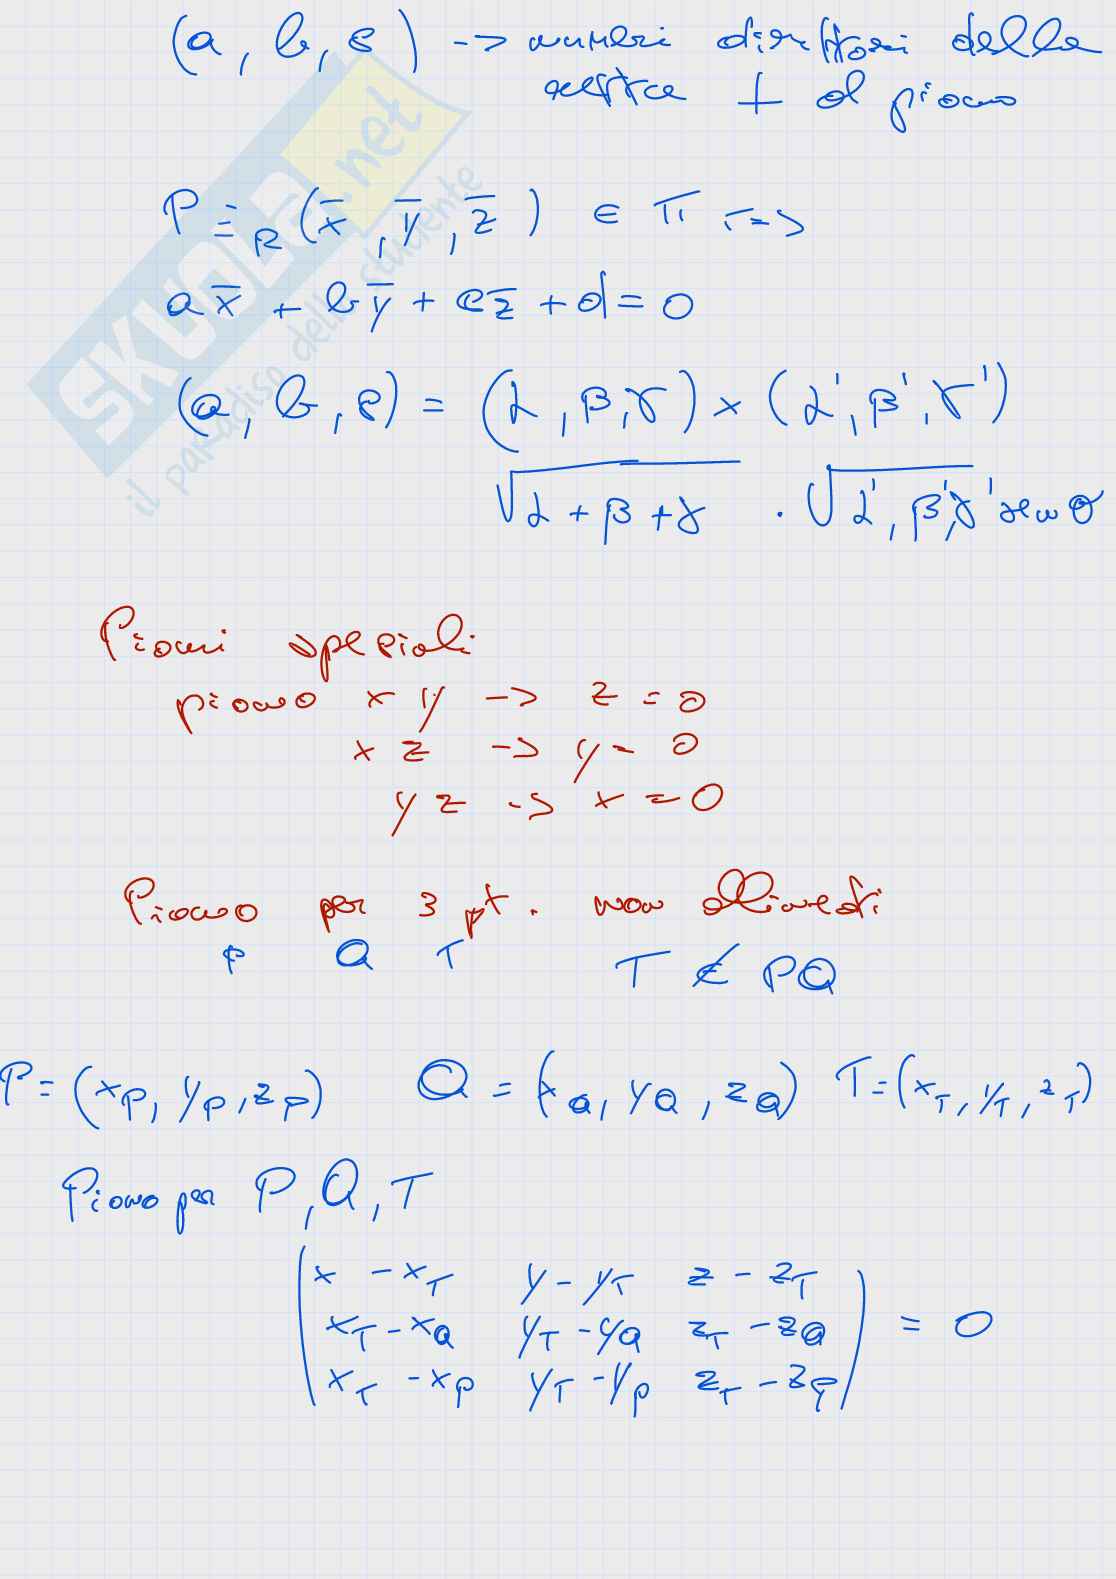 (a, b, c) -> numeri direttori della
retta ⊥ al piano
P ≡_R (x̅, y̅, z̅) ∈ π =>
a x̅ + b y̅ + c z̅ + d = 0
(a, b, c) = (α, β, γ) × (α', β', γ')
√α + β + γ · √α', β', γ' sen θ
Piani speciali
piano x y -> z = 0
x z -> y = 0
y z -> x = 0
Piano per 3 pt. non allineati
P Q T T ∉ PQ
P = (x_P, y_P, z_P) Q = (x_Q, y_Q, z_Q) T = (x_T, y_T, z_T)
Piano per P, Q, T
| x - x_T y - y_T z - z_T |
| x_T - x_Q y_T - y_Q z_T - z_Q | = 0
| x_T - x_P y_T - y_P z_T - z_P |
SKUOLA.net
il paradiso dello studente